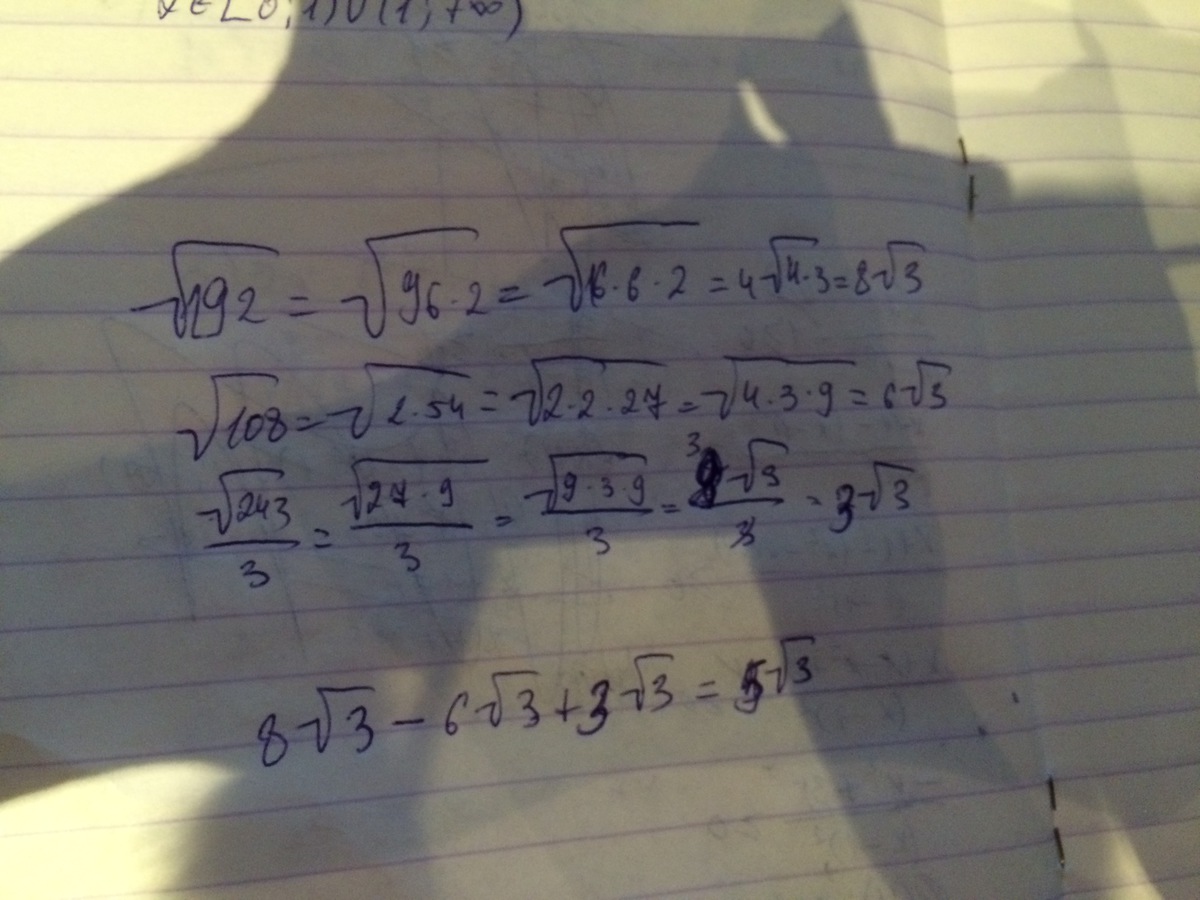 x ∈ [0; 1) ∪ (1; +∞)
√192 = √96·2 = √16·6·2 = 4√4·3 = 8√3
√108 = √2·54 = √2·2·27 = √4·3·9 = 6√3
√243/3 = √27·9/3 = √9·3·9/3 = 3 9√3/3 = 3√3
8√3 − 6√3 + 3√3 = 5√3